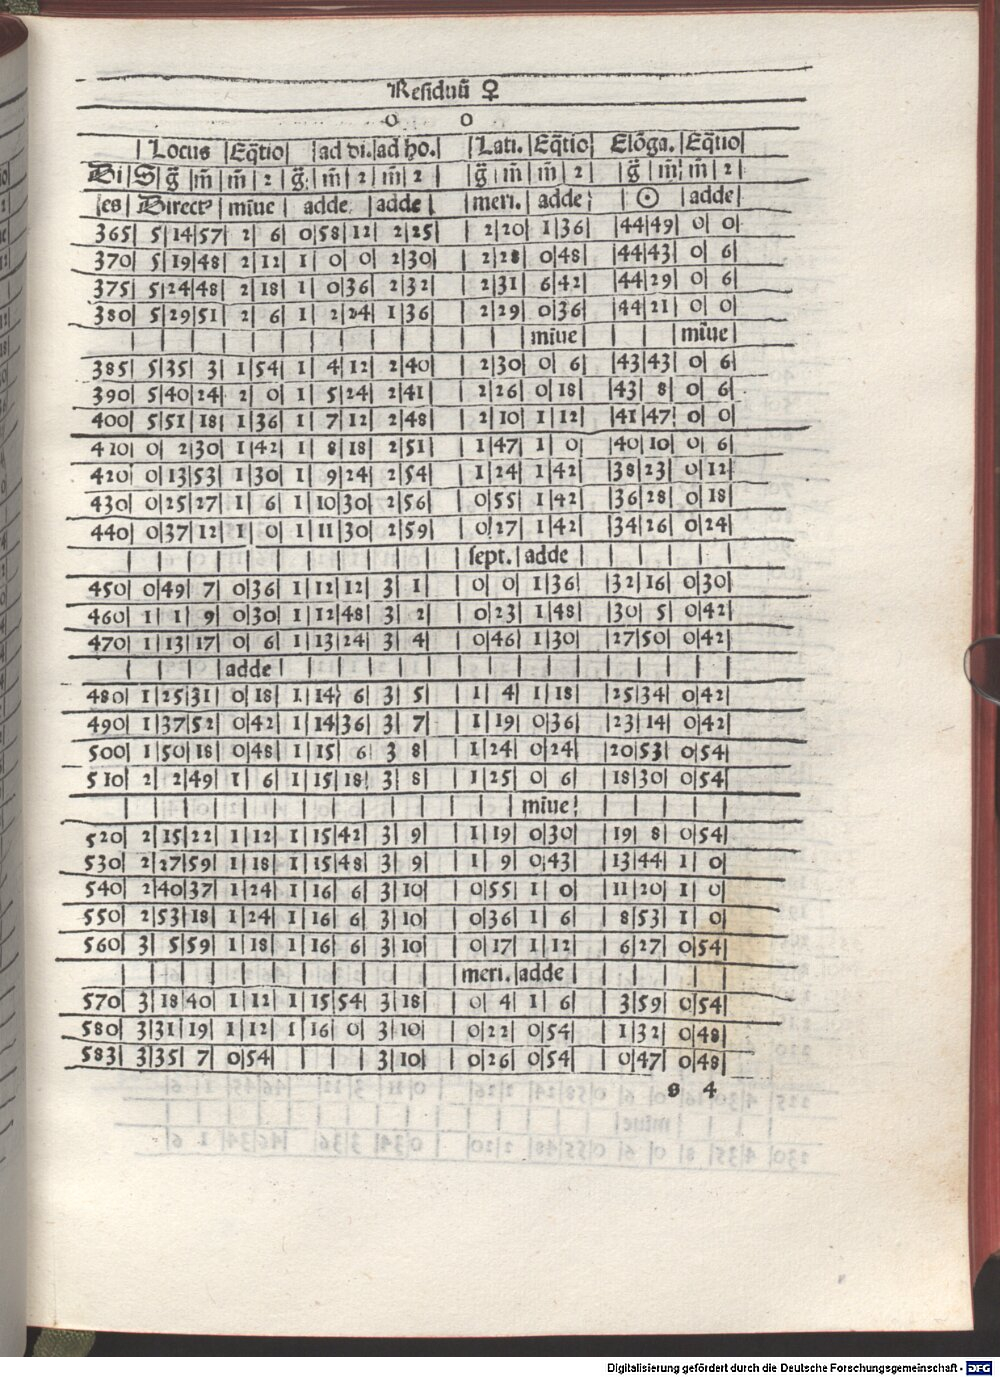 Residuũ ♀
0 0
| Locus |Eq̃tio| |ad di.|ad ho.| |Lati.|Eq̃tio| Elõga.|Eq̃tio|
Di|S|g̃|m̃|m̃|2|g̃|m̃|2|m̃|2| |g̃|m̃|m̃|2| |g̃|m̃|m̃|2|
|es|Direct⁹|miũe| adde |adde| |meri.|adde| |☉|adde|
365| 5|14|57| 2| 6| 0|58|12| 2|25| |2|20| 1|36| |44|49| 0| 0|
370| 5|19|48| 2|12| 1| 0| 0| 2|30| |2|28| 0|48| |44|43| 0| 6|
375| 5|24|48| 2|18| 1| 0|36| 2|32| |2|31| 6|42| |44|29| 0| 6|
380| 5|29|51| 2| 6| 1| 2|24| 1|36| |2|29| 0|36| |44|21| 0| 0|
|miũe| |miũe|
385| 5|35| 3| 1|54| 1| 4|12| 2|40| |2|30| 0| 6| |43|43| 0| 6|
390| 5|40|24| 2| 0| 1| 5|24| 2|41| |2|26| 0|18| |43| 8| 0| 6|
400| 5|51|18| 1|36| 1| 7|12| 2|48| |2|10| 1|12| |41|47| 0| 0|
410| 0| 2|30| 1|42| 1| 8|18| 2|51| |1|47| 1| 0| |40|10| 0| 6|
420| 0|13|53| 1|30| 1| 9|24| 2|54| |1|24| 1|42| |38|23| 0|12|
430| 0|25|27| 1| 6| 1|10|30| 2|56| |0|55| 1|42| |36|28| 0|18|
440| 0|37|12| 1| 0| 1|11|30| 2|59| |0|27| 1|42| |34|26| 0|24|
|sept.|adde|
450| 0|49| 7| 0|36| 1|12|12| 3| 1| |0| 0| 1|36| |32|16| 0|30|
460| 1| 1| 9| 0|30| 1|12|48| 3| 2| |0|23| 1|48| |30| 5| 0|42|
470| 1|13|17| 0| 6| 1|13|24| 3| 4| |0|46| 1|30| |27|50| 0|42|
|adde|
480| 1|25|31| 0|18| 1|14| 6| 3| 5| |1| 4| 1|18| |25|34| 0|42|
490| 1|37|52| 0|42| 1|14|36| 3| 7| |1|19| 0|36| |23|14| 0|42|
500| 1|50|18| 0|48| 1|15| 6| 3| 8| |1|24| 0|24| |20|53| 0|54|
510| 2| 2|49| 1| 6| 1|15|18| 3| 8| |1|25| 0| 6| |18|30| 0|54|
|miũe|
520| 2|15|22| 1|12| 1|15|42| 3| 9| |1|19| 0|30| |19| 8| 0|54|
530| 2|27|59| 1|18| 1|15|48| 3| 9| |1| 9| 0|43| |13|44| 1| 0|
540| 2|40|37| 1|24| 1|16| 6| 3|10| |0|55| 1| 0| |11|20| 1| 0|
550| 2|53|18| 1|24| 1|16| 6| 3|10| |0|36| 1| 6| |8|53| 1| 0|
560| 3| 5|59| 1|18| 1|16| 6| 3|10| |0|17| 1|12| |6|27| 0|54|
|meri.|adde|
570| 3|18|40| 1|12| 1|15|54| 3|18| |0| 4| 1| 6| |3|59| 0|54|
580| 3|31|19| 1|12| 1|16| 0| 3|10| |0|22| 0|54| |1|32| 0|48|
583| 3|35| 7| 0|54| | | | 3|10| |0|26| 0|54| |0|47| 0|48|
8 4
Digitalisierung gefördert durch die Deutsche Forschungsgemeinschaft - DFG